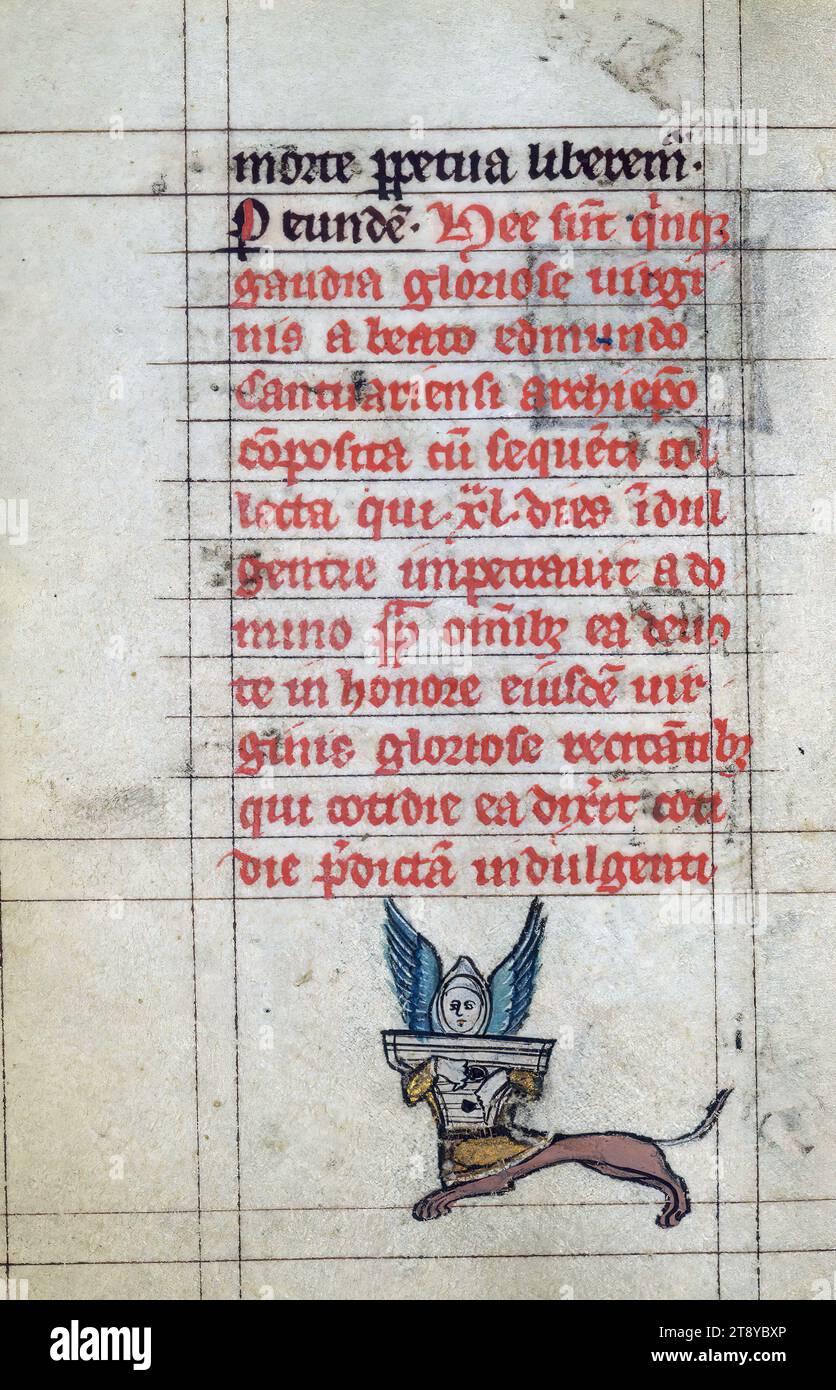 morte ppetua liberem̄.
P eundē. Hee sūt qinqꝫ
gaudia gloriose uirgi
nis a beato edmundo
Cantuariensi archiep̄o
cōposita cū sequēti col
lecta qui .xl. dies īdul
gentie impetrauit a do
mino sp̄ om̄ibꝫ ea deuo
te in honore eiusdē uir
ginis gloriose recitātibꝫ
qui cotidie ea dixīt coti
die p̄dictā indulgenti
alamy
Image ID: 2T8YBXP
www.alamy.com